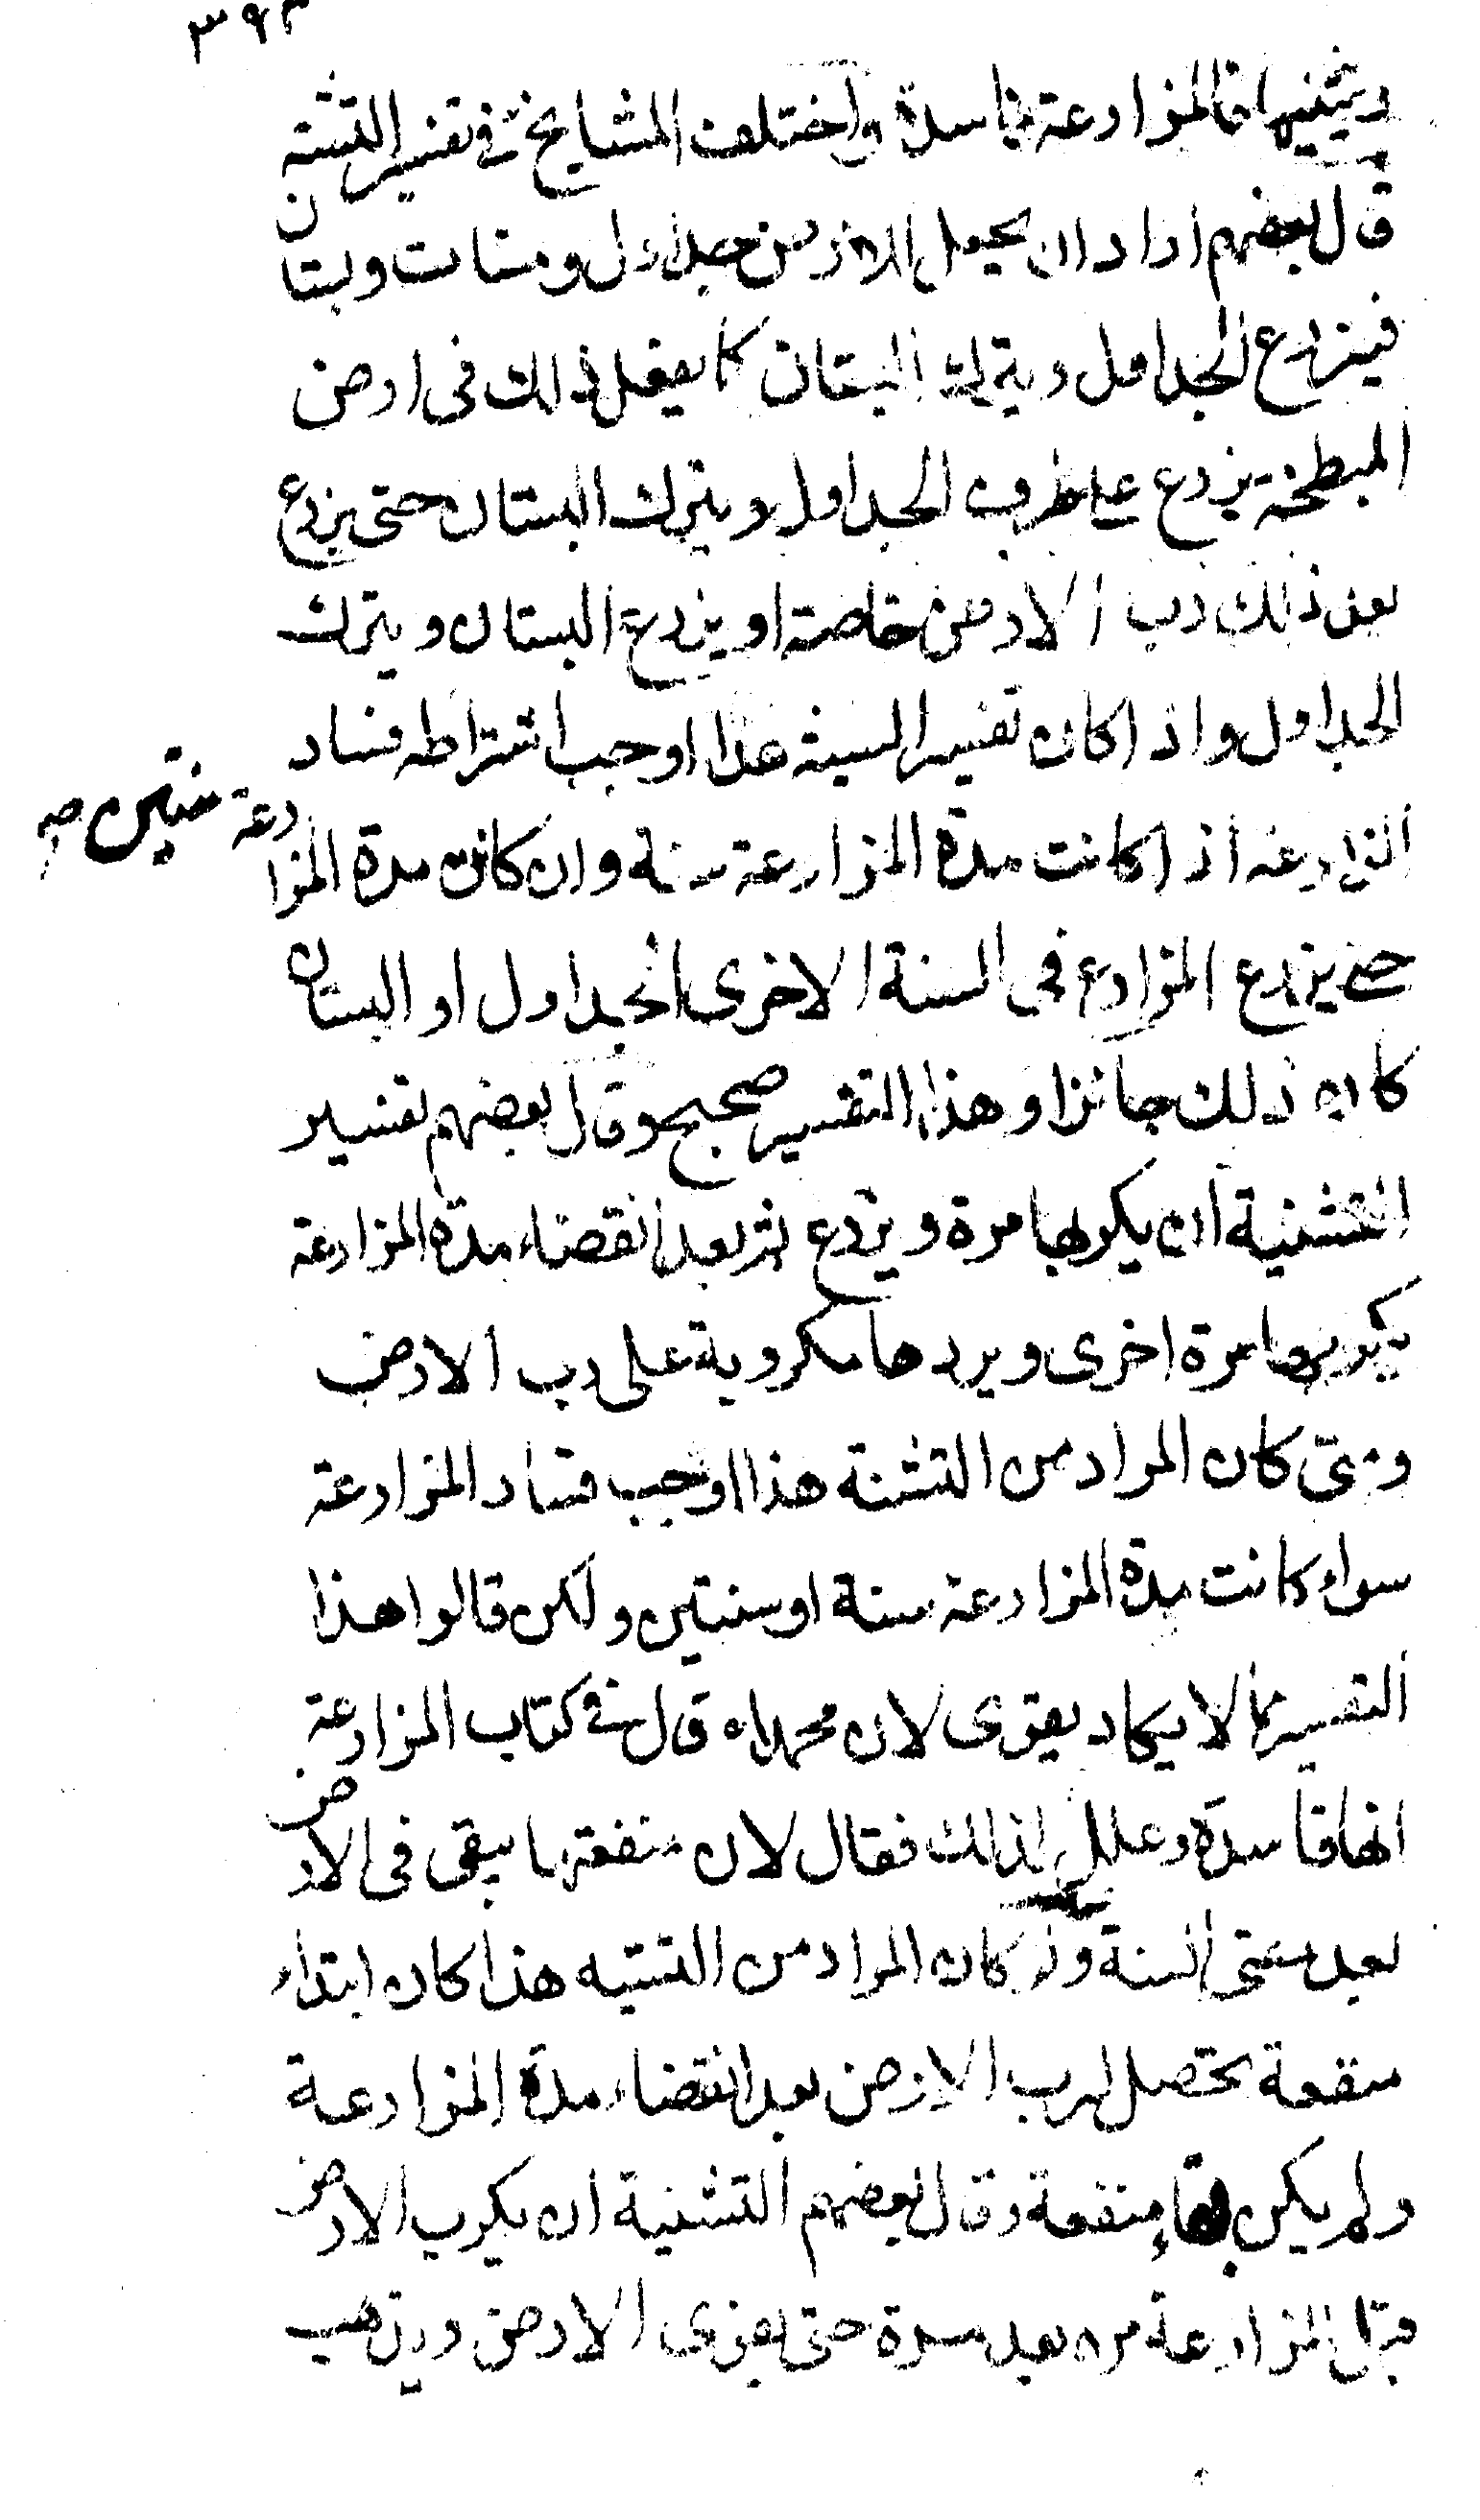 ٣٩٢
ويثنيها فالمزارعة فاسدة واختلف المشايخ في تفسير التثنية
قال بعضهم اراد ان يجعل الارض جداول ومسنات وبستان
فيزرع الجداول ويترك البستان كما يفعل ذلك في ارض
المبطخة يزرع على طرف الجداول ويترك البستان حتى يزرع
بعد ذلك رب الارض خاصة او يزرع البستان ويترك
الجداول واذا كان تفسير التثنية هذا اوجب اشتراطه فساد
المزارعة اذا كانت مدة المزارعة سنة وان كانت مدة المزارعة سنتين صح
حتى يزرع المزارع في السنة الاخرى الجداول او البستان
كان ذلك جائزا وهذا التفسير صحيح وقال بعضهم تفسير
التثنية ان يكربها مرة ويزرع ثم بعد انقضاء مدة المزارعة
يكربها مرة اخرى ويردها مكروبة على رب الارض
ومتى كان المراد من التثنية هذا اوجب فساد المزارعة
سواء كانت مدة المزارعة سنة او سنتين ولكن قالوا هذا
التفسير مما لا يكاد يقوى لان محمدا قال في كتاب المزارعة
انها فاسدة وعلل لذلك فقال لان منفعتها يبقى في الارض
بعد مضي السنة ولو كان المراد من التثنية هذا كان ابتداء
منفعة تحصل لرب الارض بعد انقضاء مدة المزارعة
ولم يكن بقاء منفعة وقال بعضهم التثنية ان يكرب الارض
قبل المزارعة مرة بعد مرة حتى الارض ويذهب